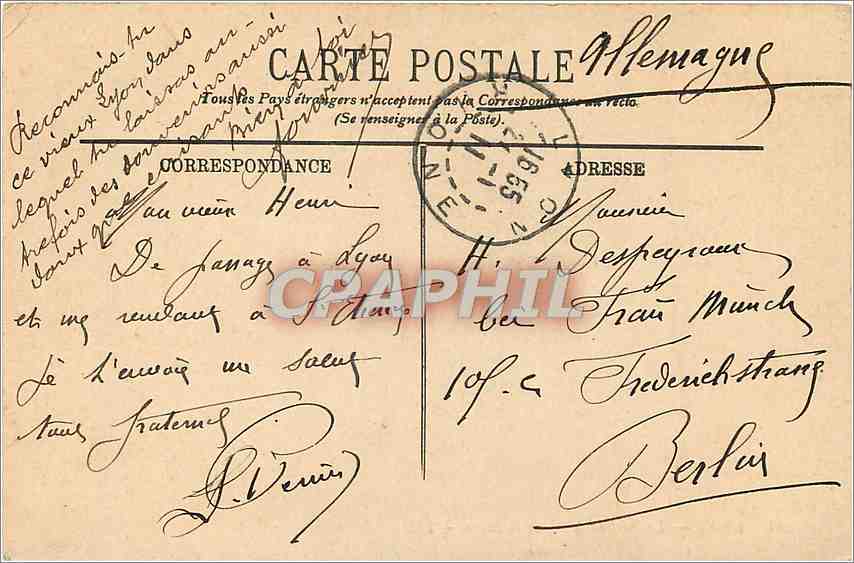 CARTE POSTALE
Allemagne
Tous les Pays étrangers n'acceptent pas la Correspondance au recto.
(Se renseigner à la Poste).
CORRESPONDANCE
ADRESSE
Reconnais-tu
ce vieux Lyon, dans
lequel tu laissas au-
trefois des souvenirs aussi
doux que
Bien à toi
LYON
16 55
Mon vieux Henri
De passage à Lyon
et me rendant à St Etienne
je t'envoie un salut
tout fraternel
Monsieur
H. Despeyroux
bei Frau Münch
105 c Frederichstrasse
Berlin
CPAPHIL